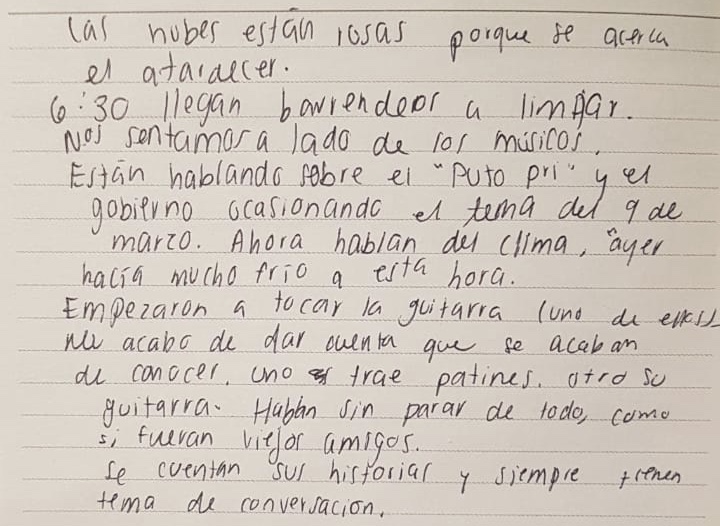 las nubes están rosas porque se acerca
el atardecer.
6:30 llegan barrenderos a limpiar.
Nos sentamos a lado de los músicos.
Están hablando sobre el "Puto pri" y el
gobierno ocasionando el tema del 9 de
marzo. Ahora hablan del clima, "ayer
hacía mucho frío a esta hora.
Empezaron a tocar la guitarra (uno de ellos)
Me acabo de dar cuenta que se acaban
de conocer. uno trae patines. otro su
guitarra. Hablan sin parar de todo, como
si fueran viejos amigos.
se cuentan sus historias y siempre tienen
tema de conversación.